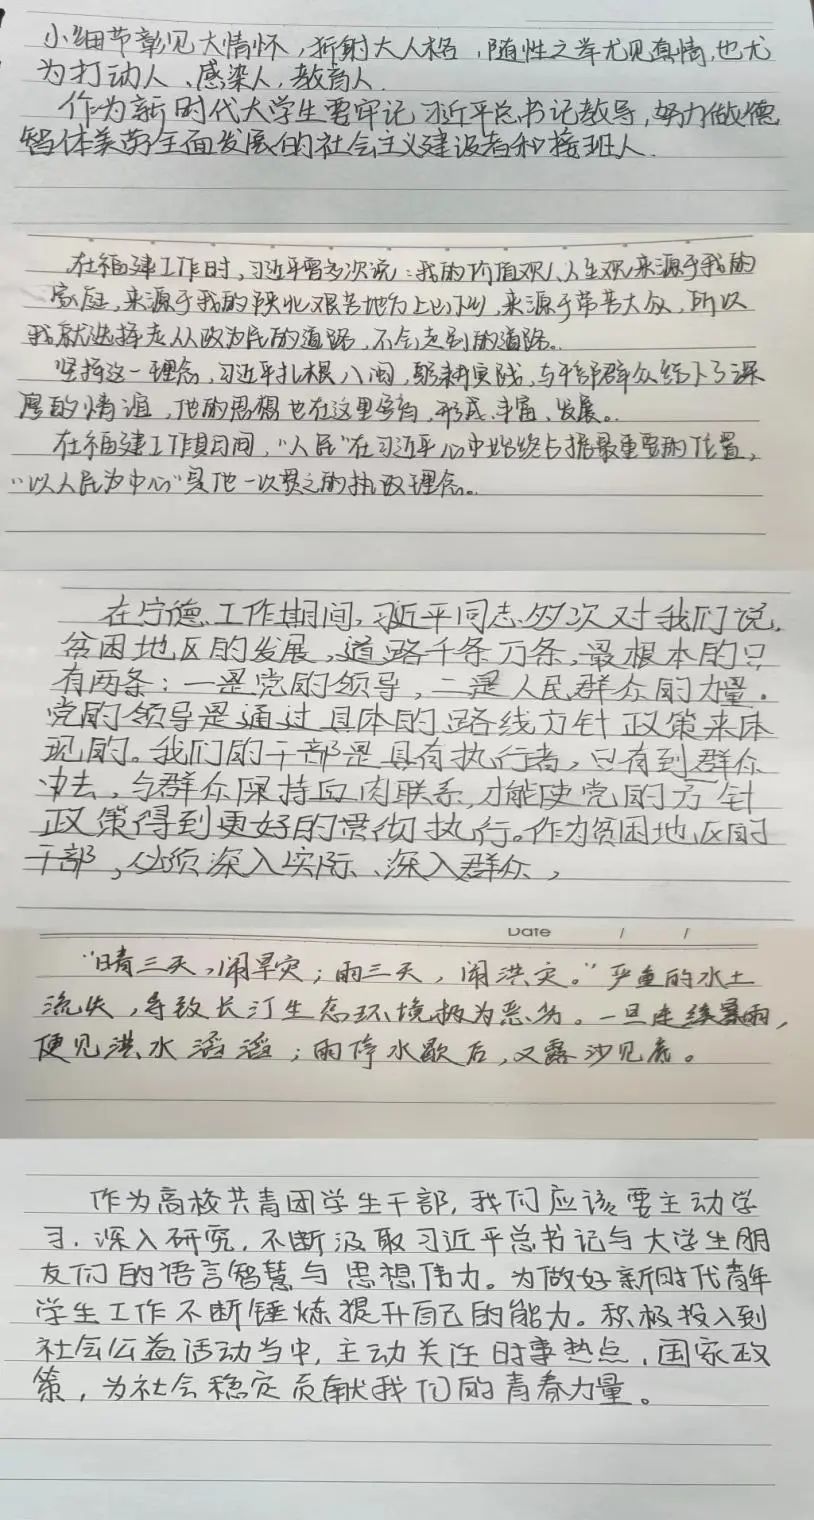 小细节彰见大情怀，折射大人格，随性之举尤见真情，也尤
为打动人、感染人，教育人.
作为新时代大学生要牢记习近平总书记教导，努力做德
智体美劳全面发展的社会主义建设者和接班人.
在福建工作时，习近平曾多次说：我的价值观、人生观来源于我的
家庭，来源于我的陕北艰苦地方上山下乡，来源于劳苦大众，所以
我就选择走从政为民的道路，不会走别的道路。
坚持这一理念，习近平扎根八闽，躬耕实践，与干部群众结下了深
厚的情谊，他的思想也在这里孕育、形成、丰富、发展。
在福建工作期间，“人民”在习近平心中始终占据最重要的位置，
“以人民为中心”是他一以贯之的执政理念。
在宁德工作期间，习近平同志多次对我们说，
贫困地区的发展，道路千条万条，最根本的只
有两条：一是党的领导，二是人民群众的力量。
党的领导是通过具体的路线方针政策来体
现的。我们的干部是具有执行者，只有到群众
中去，与群众保持血肉联系，才能使党的方针
政策得到更好的贯彻执行。作为贫困地区的
干部，必须深入实际、深入群众，
Date / /
“晴三天，闹旱灾；雨三天，闹洪灾。”严重的水土
流失，导致长汀生态环境极为恶劣。一旦连续暴雨，
便见洪水滔滔；雨停水歇后，又露沙见底。
作为高校共青团学生干部，我们应该要主动学
习.深入研究，不断汲取习近平总书记与大学生朋
友们的语言智慧与思想伟力。为做好新时代青年
学生工作不断锤炼提升自己的能力。积极投入到
社会公益活动当中，主动关注时事热点、国家政
策，为社会稳定贡献我们的青春力量。